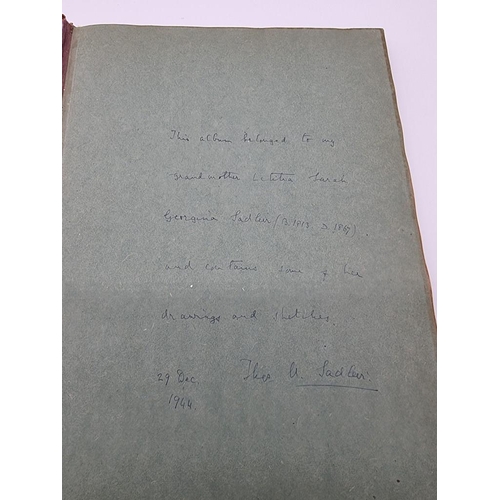 This album belonged to my
grandmother Letitia Sarah
Georgina Sadleir (B. 1813 D. 1867).
and contains some of her
drawings and sketches.
29 Dec Thos U. Sadleir
1944.